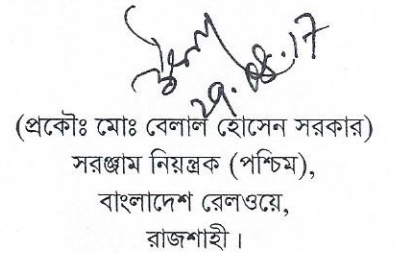 ২৭.০৪.১৭
(প্রকৌঃ মোঃ বেলাল হোসেন সরকার)
সরঞ্জাম নিয়ন্ত্রক (পশ্চিম),
বাংলাদেশ রেলওয়ে,
রাজশাহী।